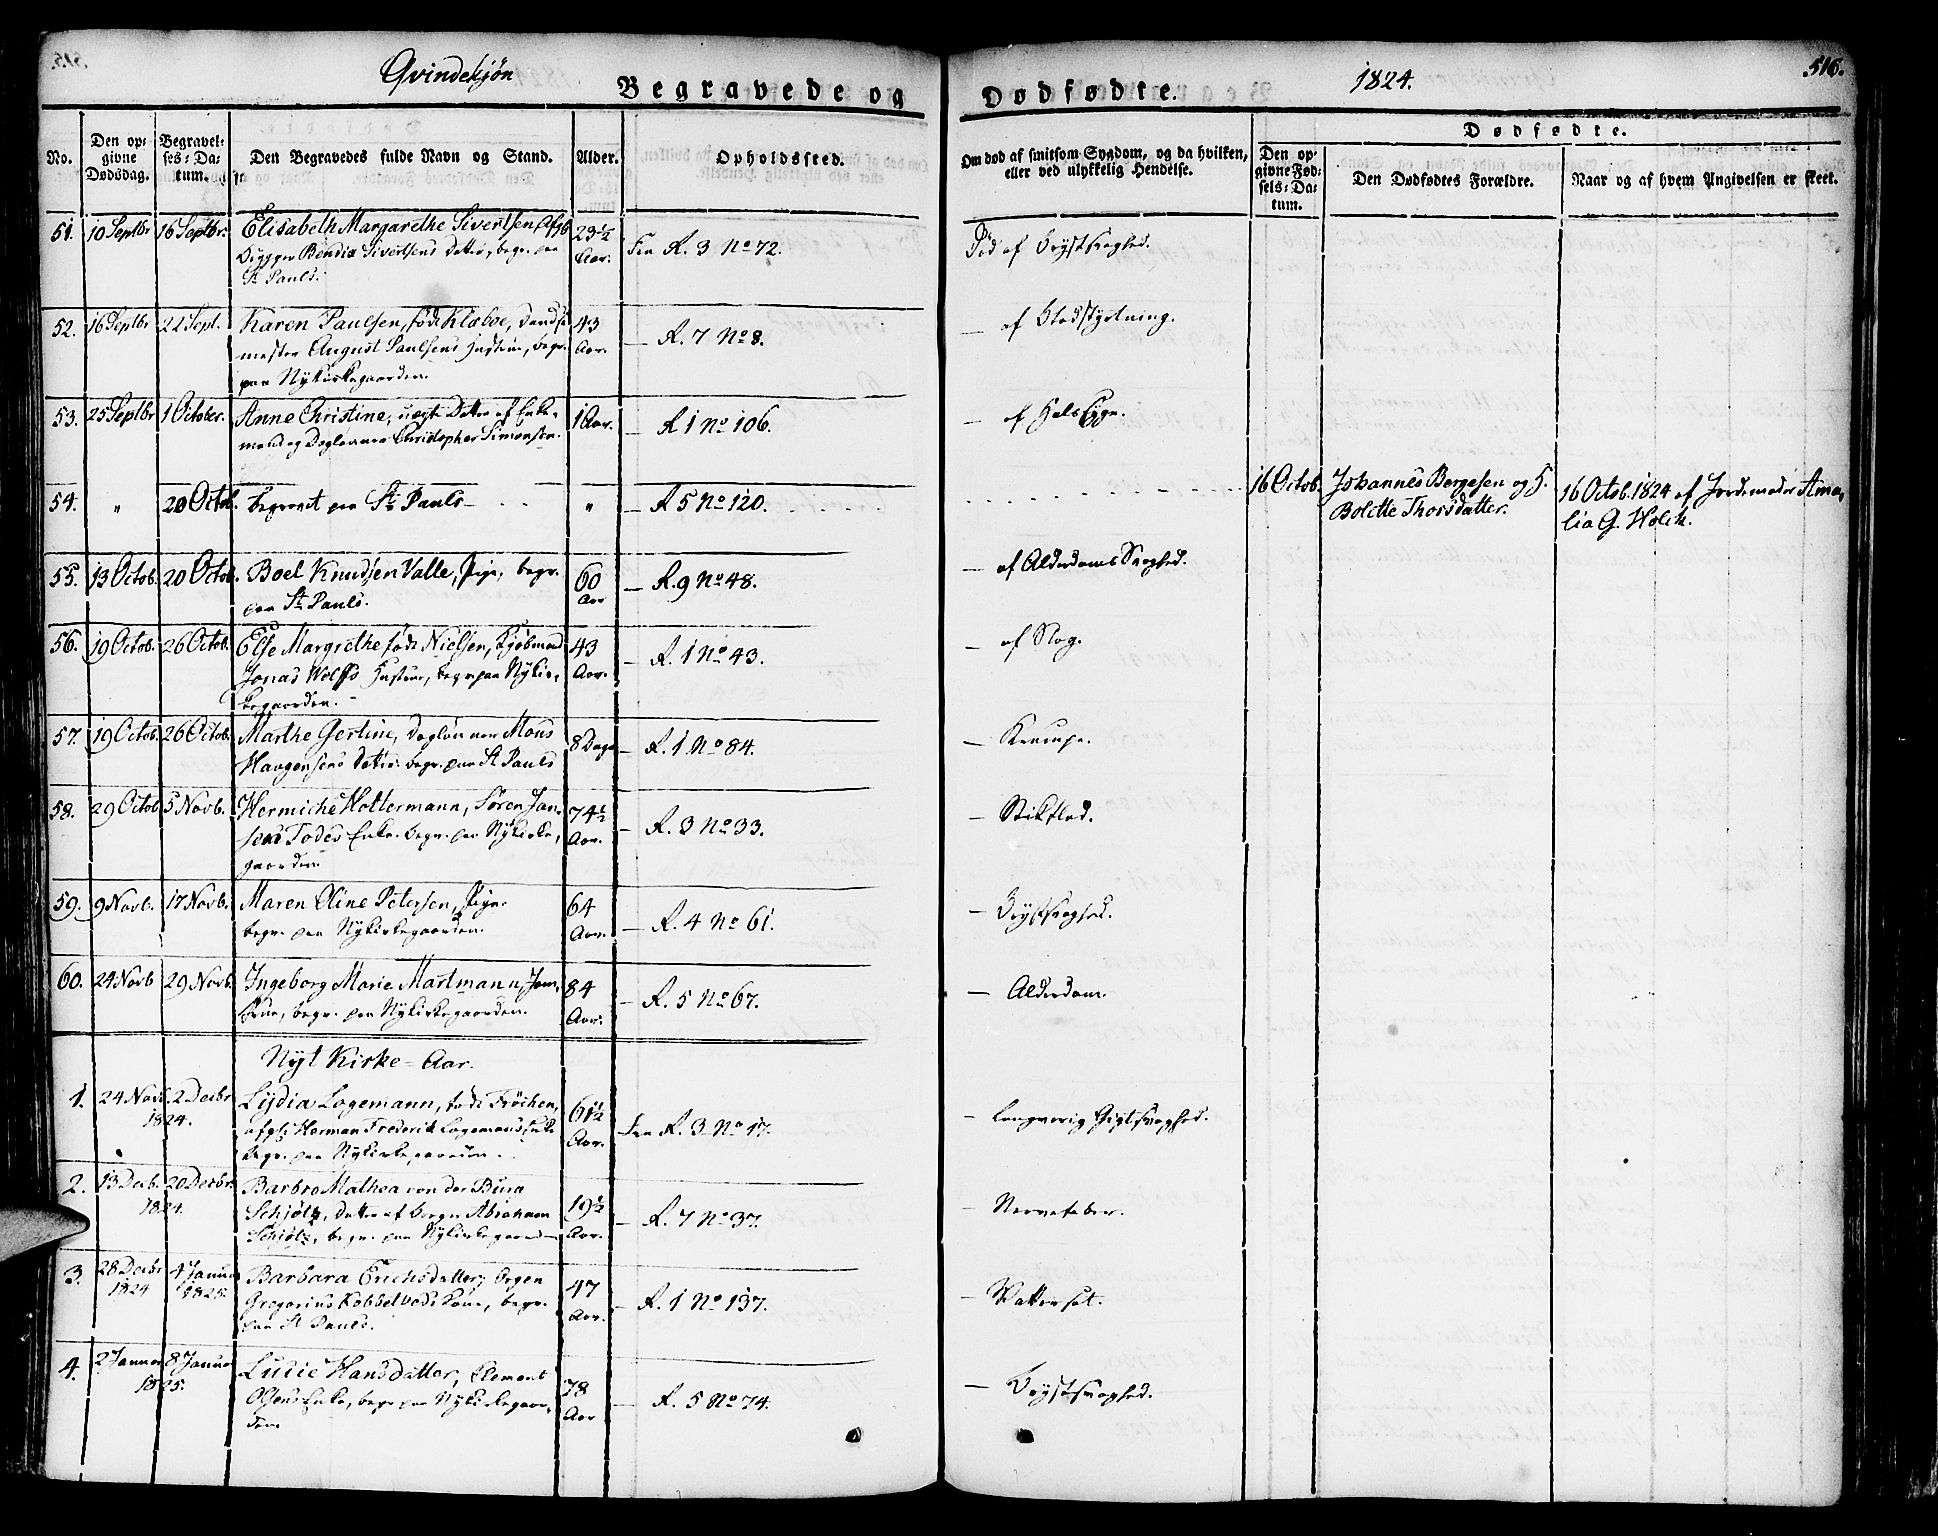 Qvindekjøn
Begravede og
Dødfødte.
1824.
516.
No.
Den opgivne Dødsdag.
Begravelses-Datum.
Den Begravedes fulde Navn og Stand.
Alder.
Opholdssted.
Om død af smitsom Sygdom, og da hvilken, eller ved ulykkelig Hendelse.
Dødfødte.
Den opgivne Fødsels-Datum.
Den Dødfødtes Forældre.
Naar og af hvem Angivelsen er skeet.
51. 10 Septbr 16 Septbr. Elisabeth Margarethe Sivertsen 23½ Aar. R. 3 No 72. Død af Brystsvaghed.
Brygger Bendix Sivertsens Datter, begr. paa
St Pauls.
52. 16 Septbr 22 Sept. Karen Paulsen, født Klæboe, Dandse 43 Aar. — R. 7 No 8. — af Blodstyrtning.
mester August Paulsens Hustrue, begr.
paa Nykirkegaarden.
53. 25 Septbr 1 October. Anne Christine, uægte Datter af Enke- 1 Aar. — R 1 No 106. — af Halssyge.
mand og Dagleier Christopher Simonsen.
54. " 20 Octob. begravet paa St Pauls — " — R 5 No 120. 16 Octob. Johannes Børgesen og H. 16 Octob. 1824 af Jordemoder Ama-
Bolette Thorsdatter. lia G. Holck.
55. 13 Octob. 20 Octob. Boel Knudsen Valle, Pige, begr. 60 Aar — R. 9 No 48. — af Alderdoms Svaghed.
paa St Pauls.
56. 19 Octob. 26 Octob. Else Margrethe født Nielsen, Kjøbmand 43 Aar. — R. 1 No 43. — af Slag.
Jonas Wolffs Hustrue, begr. paa Nykir-
kegaarden.
57. 19 Octob. 26 Octob. Marthe Gertine, Dagleier Mons 8 Dage — R. 1 No 84. — Krampe.
Haagensens Datter. begr. paa St Pauls
58. 29 Octob 5 Novb. Hermiche Holtermann, Søren Jan- 74½ Aar. — R. 3 No 33. — Stikflod.
sens Todes Enke. begr. paa Nykirke-
gaarden.
59. 9 Novb. 17 Novb. Maren Eline Petersen, Pige. 64 Aar. — R. 4 No 61. — Brystsvaghed.
begr. paa Nykirkegaarden.
60. 24 Novb 29 Novb. Ingeborg Marie Martmann, Jom- 84 Aar. — R. 5 No 67. — Alderdom.
frue, begr. paa Nykirkegaarden.
Nyt Kirke-Aar.
1. 24 Novb. 2 Decbr 1824. Lydia Logemann, født Frøchen, 61½ Aar. R. 3 No 17. — langvarig Gigtsvaghed.
afgl. Herman Frederik Logemands Enke
begr. paa Nykirkegaarden.
2. 13 Decb. 20 Decbr. 1824. Barbro Mathea von der Bura 19½ Aar. — R. 7 No 37. — Nervefeber.
Schjøtz, Datter af Borger Abraham
Schjøtz, begr. paa Nykirkegaarden—
3. 28 Decbr 1824 4 Januar 1825. Barbara Erichsdatter, Borger 47 Aar. — R. 1 No 137. — Vattersot.
Gregorius Kobbelveds Kone, begr.
paa St Pauls.
4. 2 Januar 8 Januar 1825. Lucie Hansdatter, Clement 78 Aar — R. 5 No 74. — Brystsvaghed.
Olsens Enke, begr paa Nykirkegaar-
den